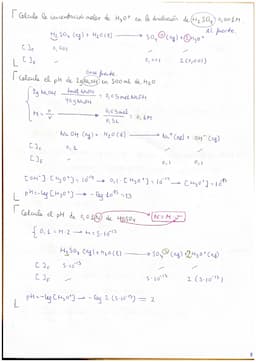 Calcula la concentración molar de H₃O⁺ en la disolución de H₂SO₄ 0,001M
ác. fuerte.
H₂SO₄ (aq) + H₂O (l) → SO₄²⁻ (aq) + 2H₃O⁺
[ ]₀ 0,001 - -
[ ]f - 0,001 2(0,001)
Calcula el pH de 2g NaOH en 500 ml de H₂O
base fuerte
2g NaOH · 1mol NaOH / 40g NaOH = 0,05mol NaOH
M = n/V → 0,05mol / 0,5L = 0,1M
NaOH (aq) + H₂O (l) → Na⁺ (aq) + OH⁻ (aq)
[ ]₀ 0,1 - -
[ ]f - 0,1 0,1
[OH⁻]·[H₃O⁺] = 10⁻¹⁴ → 0,1·[H₃O⁺] = 10⁻¹⁴ → [H₃O⁺] = 10⁻¹³
pH = -log [H₃O⁺] → -log 10⁻¹³ = 13
Calcula el pH de 0,01N de H₂SO₄ N = M·
H₂SO₄ (aq) + H₂O (l) → SO₄²⁻ (aq) + 2H₃O⁺ (aq)
[ ]₀ 5·10⁻³ - -
[ ]f - 5·10⁻³ 2(5·10⁻³)
pH = -log [H₃O⁺] → -log 2(5·10⁻³) = 2